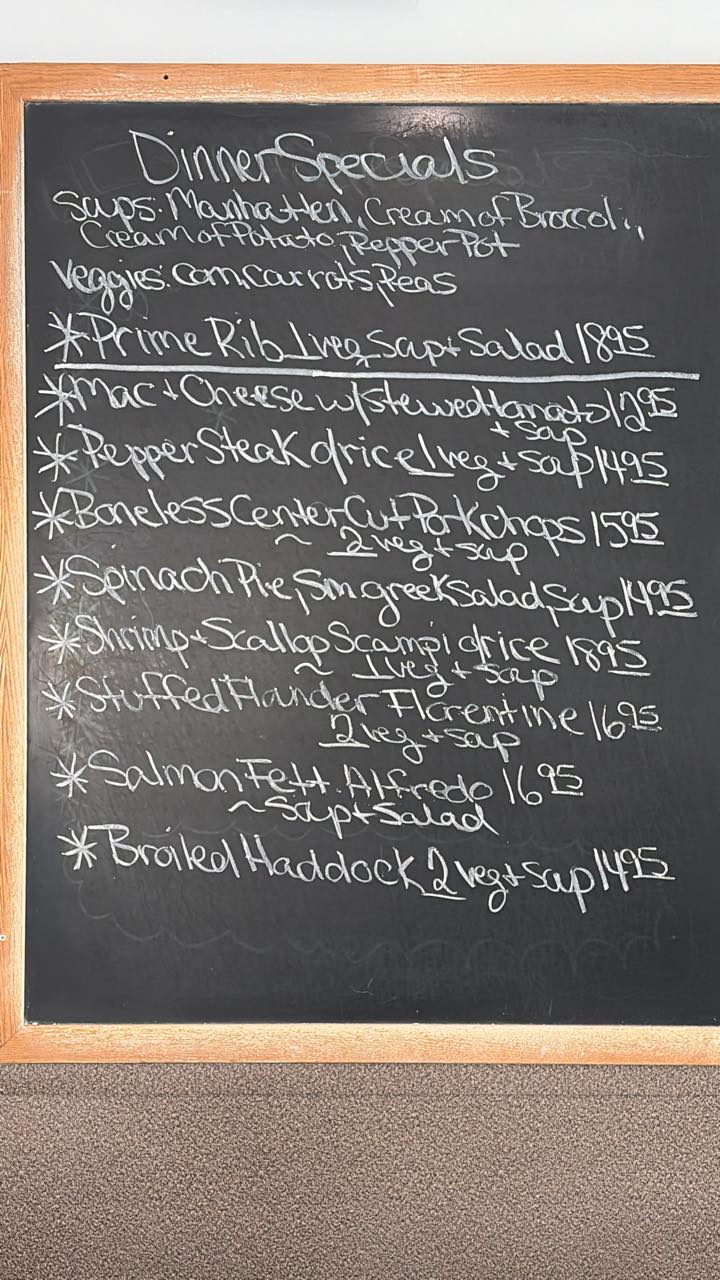 Dinner Specials
Soups: Manhatten, Cream of Broccoli,
Cream of Potato, Pepper Pot
Veggies: Corn, Carrots, Peas
*Prime Rib 1 veg, Soup + Salad 18 95
*Mac + Cheese w/stewed tomato 12 95
+ Soup
*Pepper Steak o/rice 1 veg + Soup 14 95
*Boneless Center Cut Porkchops 15 95
~ 2 veg + soup
*Spinach Pie, Sm greek Salad, Soup 14 95
*Shrimp + Scallop Scampi o/rice 18 95
~ 1 veg + soup
*Stuffed Flounder Florentine 16 95
2 veg + soup
*Salmon Fett. Alfredo 16 95
~ Soup + Salad
*Broiled Haddock 2 veg + Soup 14 95